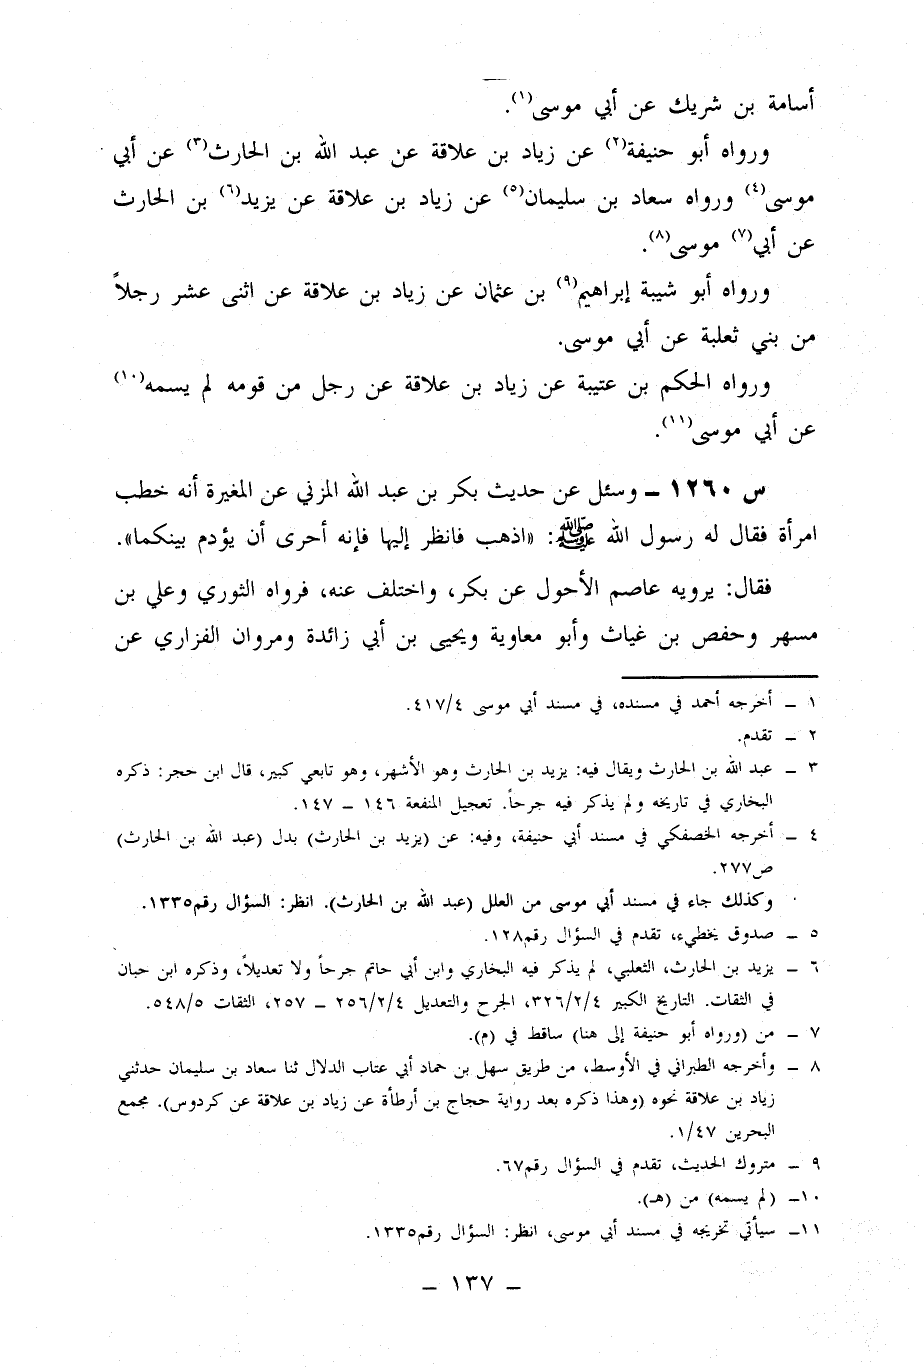 أسامة بن شريك عن أبي موسى(١).
ورواه أبو حنيفة(٢) عن زياد بن علاقة عن عبد الله بن الحارث(٣) عن أبي
موسى(٤) ورواه سعاد بن سليمان(٥) عن زياد بن علاقة عن يزيد(٦) بن الحارث
عن أبي(٧) موسى(٨).
ورواه أبو شيبة إبراهيم(٩) بن عثمان عن زياد بن علاقة عن اثنى عشر رجلاً
من بني ثعلبة عن أبي موسى.
ورواه الحكم بن عتيبة عن زياد بن علاقة عن رجل من قومه لم يسمه(١٠)
عن أبي موسى(١١).
س ١٢٦٠ ـ وسئل عن حديث بكر بن عبد الله المزني عن المغيرة أنه خطب
امرأة فقال له رسول الله ﷺ: «اذهب فانظر إليها فإنه أحرى أن يؤدم بينكما».
فقال: يرويه عاصم الأحول عن بكر، واختلف عنه، فرواه الثوري وعلي بن
مسهر وحفص بن غياث وأبو معاوية ويحيى بن أبي زائدة ومروان الفزاري عن
١ ـ أخرجه أحمد في مسنده، في مسند أبي موسى ٤١٧/٤.
٢ ـ تقدم.
٣ ـ عبد الله بن الحارث ويقال فيه: يزيد بن الحارث وهو الأشهر، وهو تابعي كبير، قال ابن حجر: ذكره
البخاري في تاريخه ولم يذكر فيه جرحاً. تعجيل المنفعة ١٤٦ ـ ١٤٧.
٤ ـ أخرجه الخصفكي في مسند أبي حنيفة، وفيه: عن (يزيد بن الحارث) بدل (عبد الله بن الحارث)
ص٢٧٧.
وكذلك جاء في مسند أبي موسى من العلل (عبد الله بن الحارث). انظر: السؤال رقم١٣٣٥.
٥ ـ صدوق يخطيء، تقدم في السؤال رقم١٢٨.
٦ ـ يزيد بن الحارث، الثعلبي، لم يذكر فيه البخاري وابن أبي حاتم جرحاً ولا تعديلاً، وذكره ابن حبان
في الثقات. التاريخ الكبير ٣٢٦/٢/٤، الجرح والتعديل ٢٥٦/٢/٤ ـ ٢٥٧، الثقات ٥٤٨/٥.
٧ ـ من (ورواه أبو حنيفة إلى هنا) ساقط في (م).
٨ ـ وأخرجه الطبراني في الأوسط، من طريق سهل بن حماد أبي عتاب الدلال ثنا سعاد بن سليمان حدثني
زياد بن علاقة نحوه (وهذا ذكره بعد رواية حجاج بن أرطأة عن زياد بن علاقة عن كردوس). مجمع
البحرين ١/٤٧.
٩ ـ متروك الحديث، تقدم في السؤال رقم٦٧.
١٠ـ (لم يسمه) من (هـ).
١١ـ سيأتي تخريجه في مسند أبي موسى، انظر: السؤال رقم١٣٣٥.
ـ ١٣٧ ـ